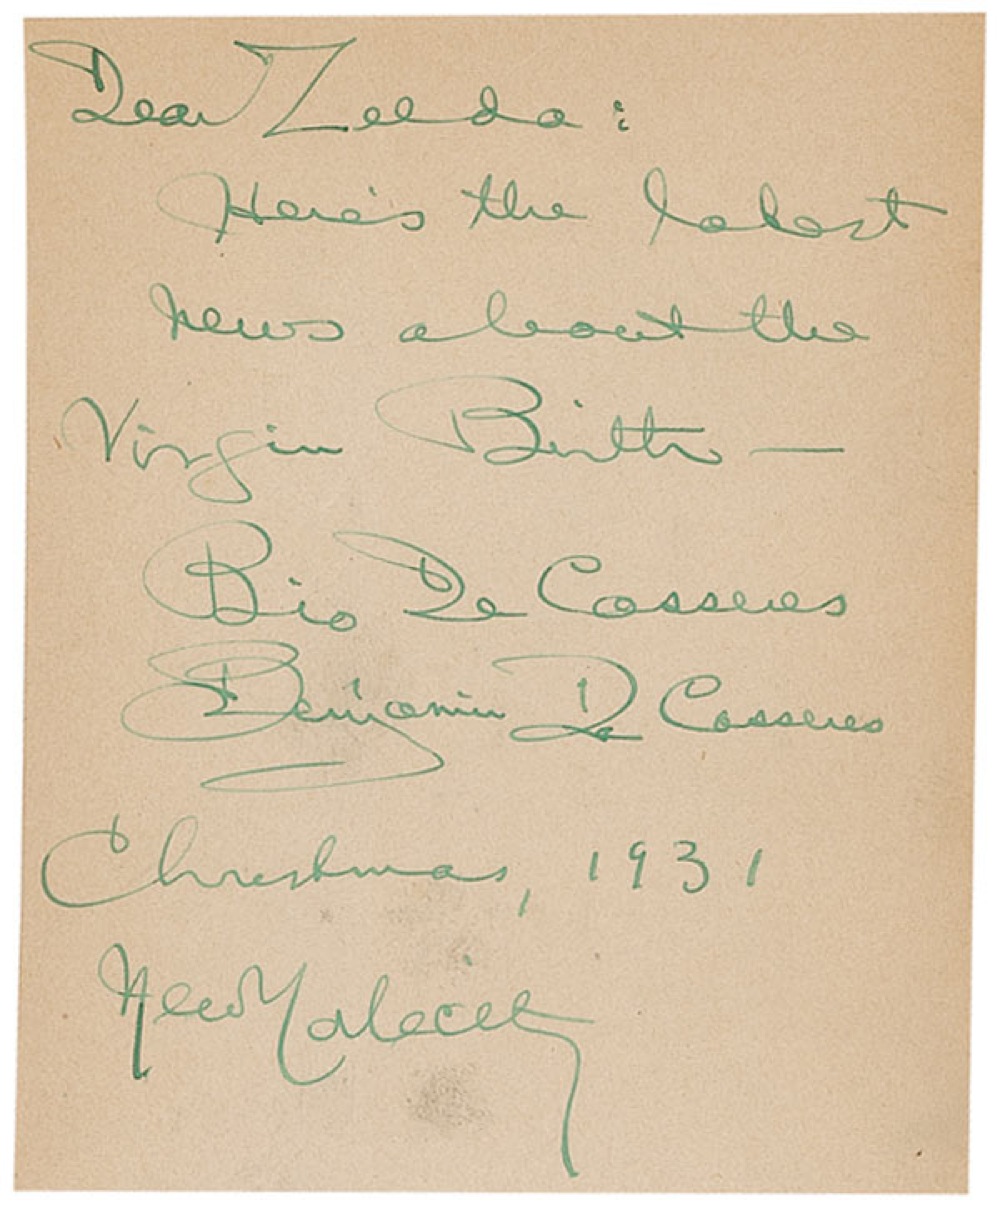 Dear Zelda:
Here's the latest
news about the
Virgin Birth —
Bio De Casseres
Benjamin De Casseres
Christmas, 1931
New York City